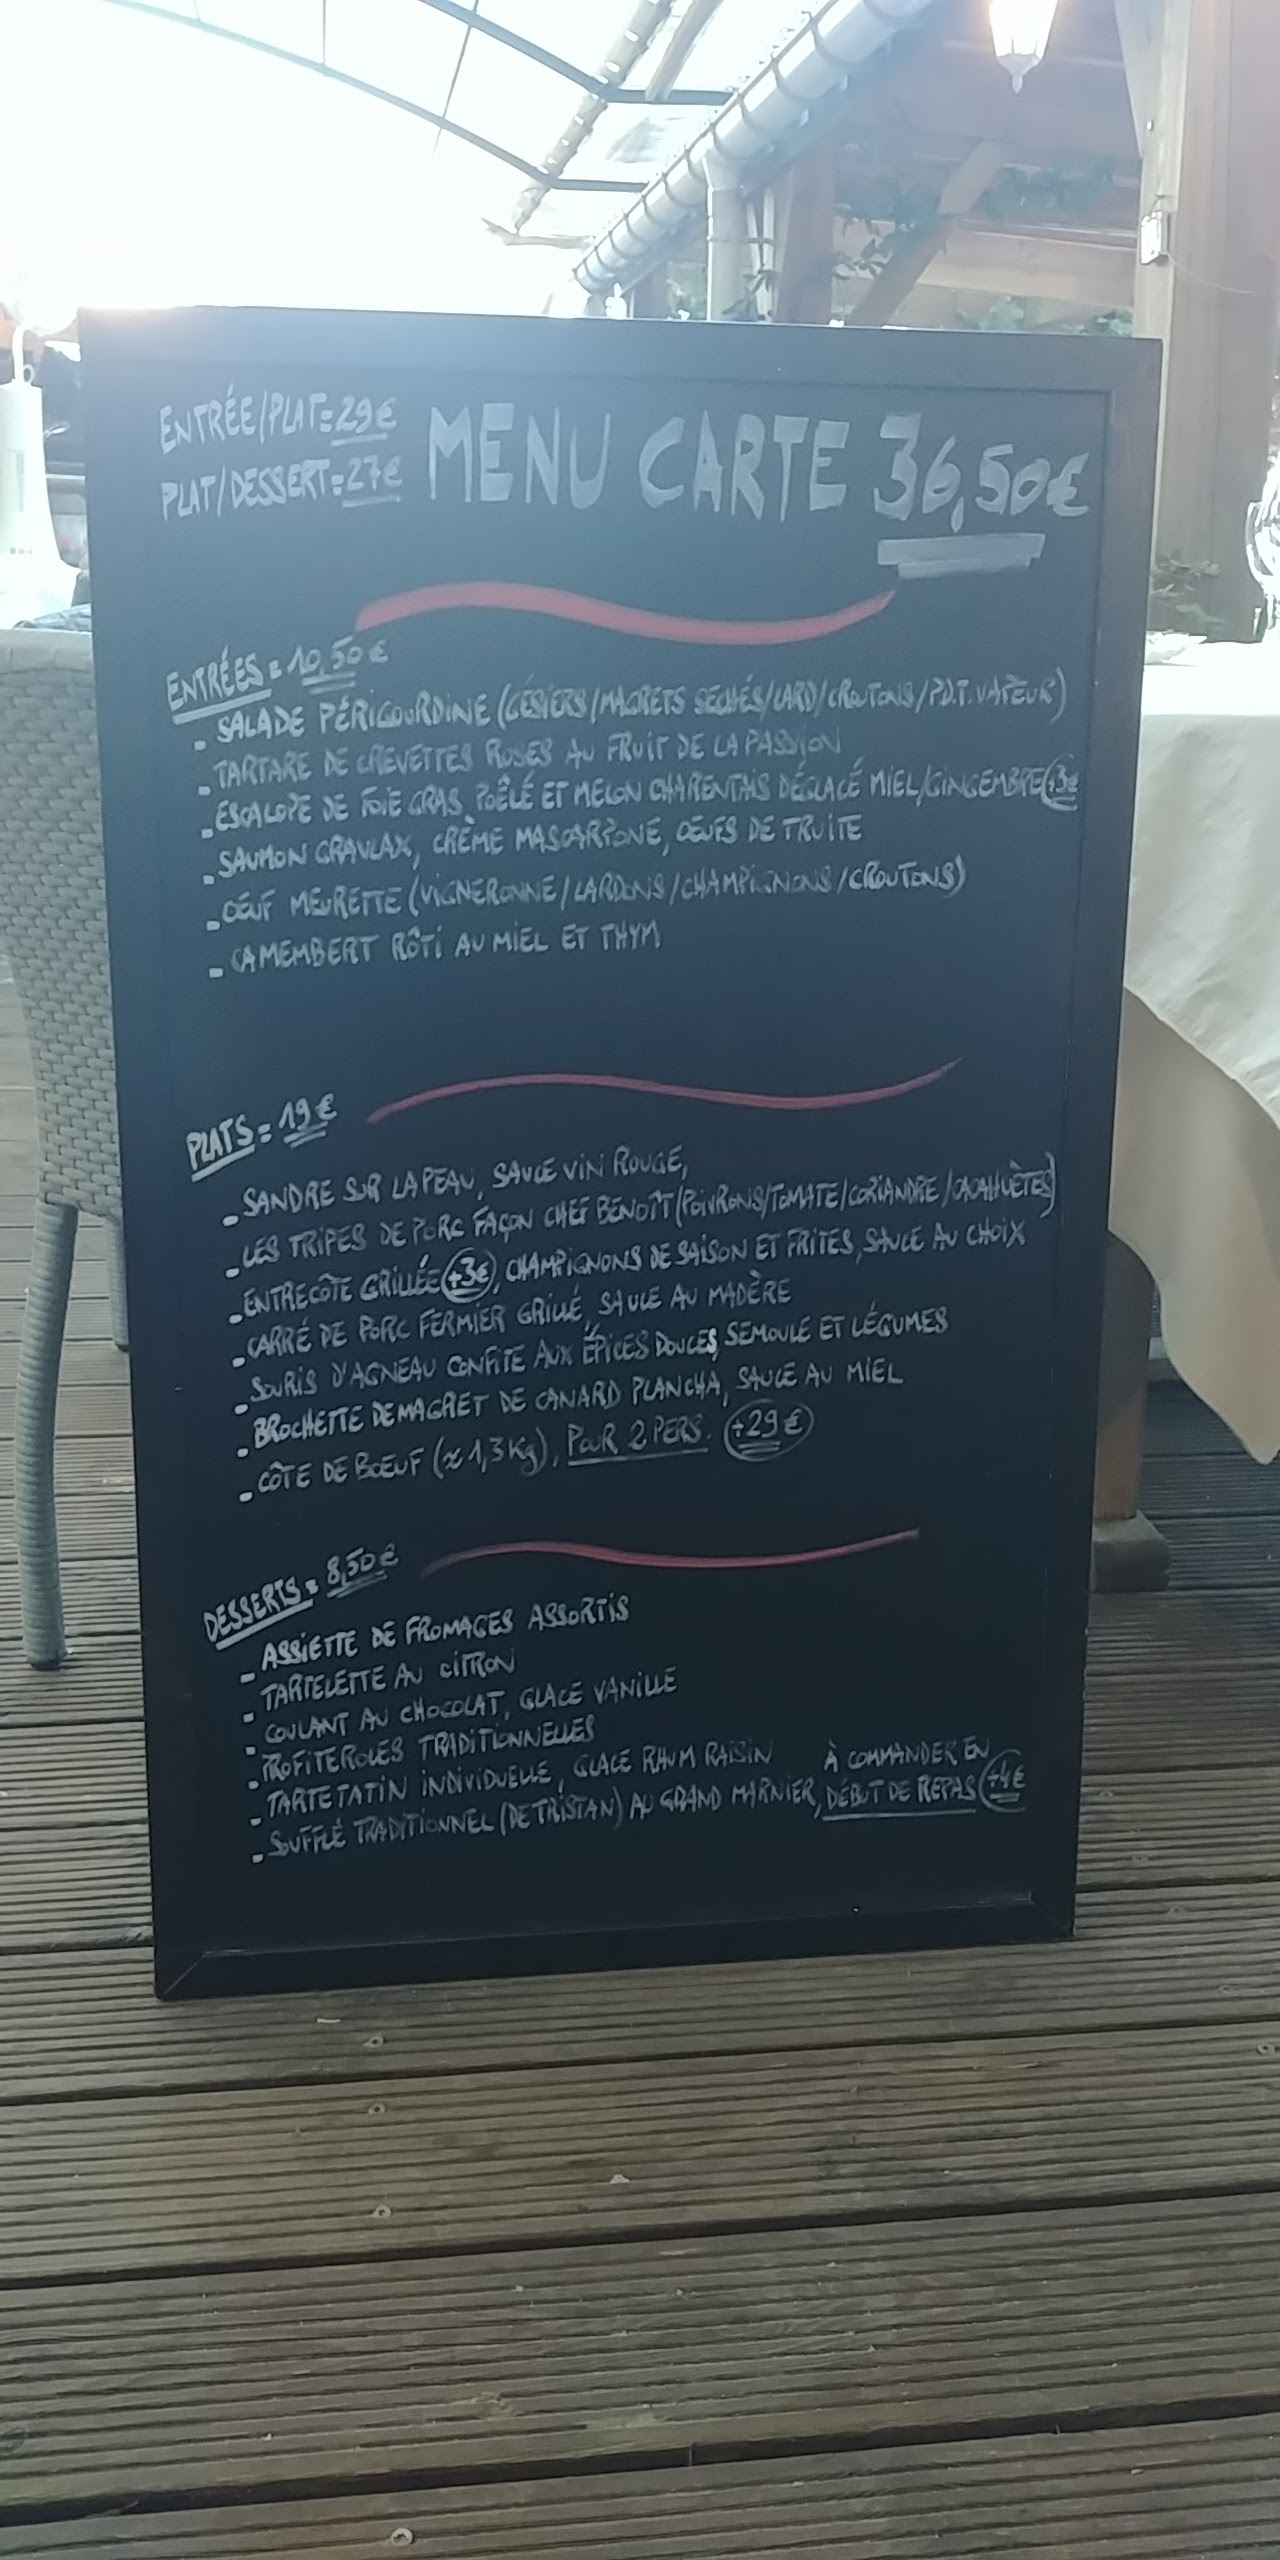 ENTRÉE/PLAT=29€
PLAT/DESSERT=27€
MENU CARTE 36,50€
ENTRÉES = 10,50€
- SALADE PÉRIGOURDINE (GÉSIERS/MAGRETS SECHÉS/LARD/CROUTONS/P.D.T. VAPEUR)
- TARTARE DE CREVETTES ROSES AU FRUIT DE LA PASSION
- ESCALOPE DE FOIE GRAS POÊLÉ ET MELON CHARENTAIS DÉGLACÉ MIEL/GINGEMBRE +3€
- SAUMON GRAVLAX, CRÈME MASCARPONE, OEUFS DE TRUITE
- OEUF MEURETTE (VIGNERONNE/LARDONS/CHAMPIGNONS/CROUTONS)
- CAMEMBERT RÔTI AU MIEL ET THYM
PLATS = 19€
- SANDRE SUR LA PEAU, SAUCE VIN ROUGE,
- LES TRIPES DE PORC FAÇON CHEF BENOÎT (POIVRONS/TOMATE/CORIANDRE/CACAHUÈTES)
- ENTRECÔTE GRILLÉE +3€, CHAMPIGNONS DE SAISON ET FRITES, SAUCE AU CHOIX
- CARRÉ DE PORC FERMIER GRILLÉ, SAUCE AU MADÈRE
- SOURIS D'AGNEAU CONFITE AUX ÉPICES DOUCES, SEMOULE ET LÉGUMES
- BROCHETTE DE MAGRET DE CANARD PLANCHA, SAUCE AU MIEL
- CÔTE DE BOEUF (≈1,3Kg), POUR 2 PERS. +29€
DESSERTS = 8,50€
- ASSIETTE DE FROMAGES ASSORTIS
- TARTELETTE AU CITRON
- COULANT AU CHOCOLAT, GLACE VANILLE
- PROFITEROLES TRADITIONNELLES
- TARTE TATIN INDIVIDUELLE, GLACE RHUM RAISIN
- SOUFFLÉ TRADITIONNEL (DE TRISTAN) AU GRAND MARNIER,
À COMMANDER EN
DÉBUT DE REPAS +4€